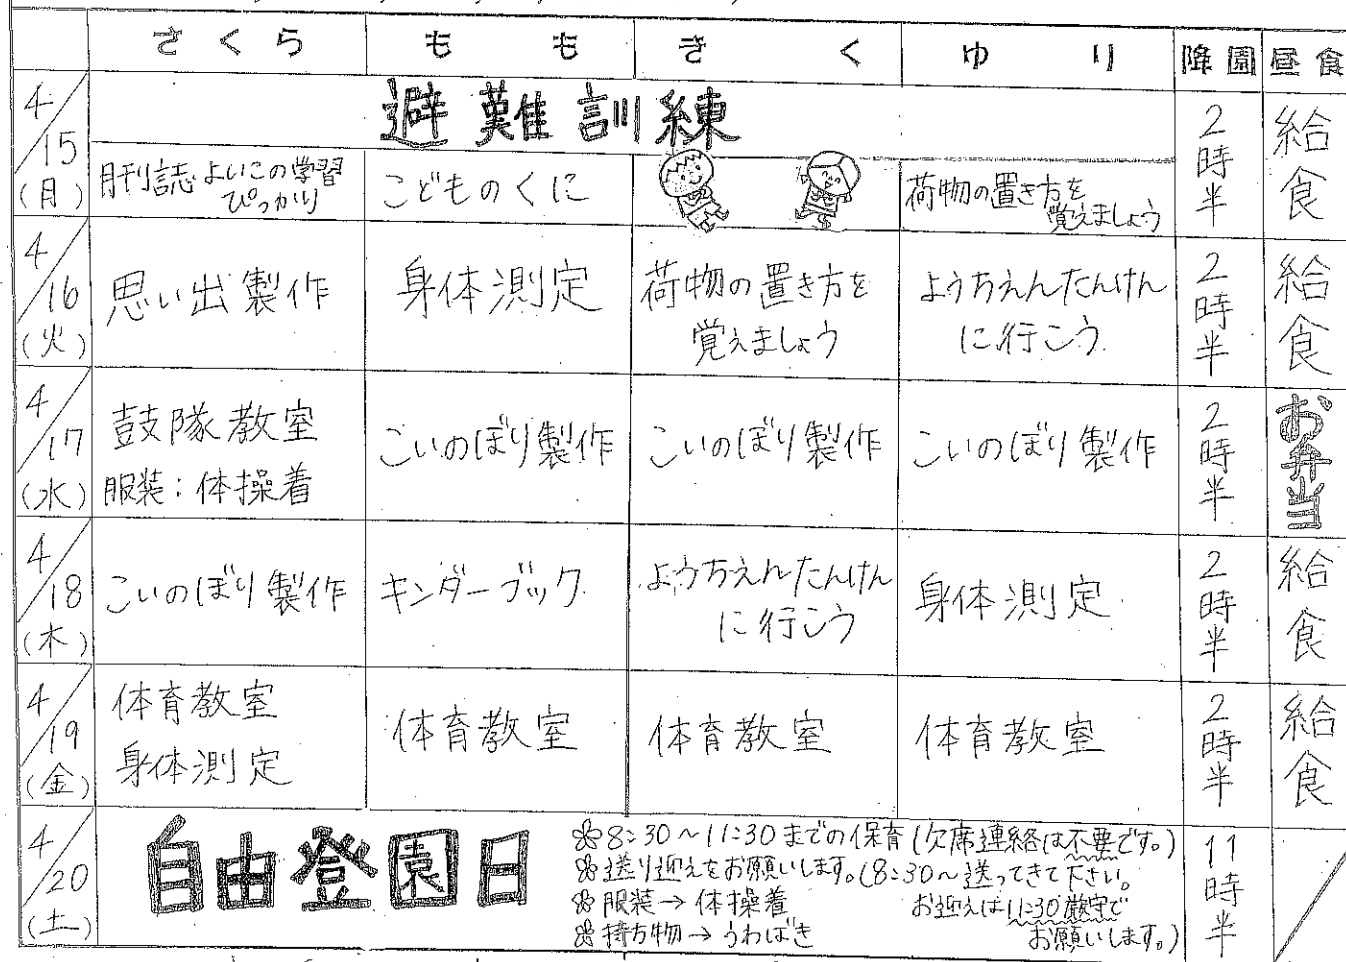 さくら もも きく ゆり 降園 昼食
4/15(月) 避難訓練 2時半 給食
月刊誌 よいこの学習
ぴっかり
こどものくに
荷物の置き方を
覚えましょう
4/16(火) 思い出製作 身体測定 荷物の置き方を
覚えましょう
ようちえんたんけん
に行こう 2時半 給食
4/17(水) 鼓隊教室
服装:体操着
こいのぼり製作 こいのぼり製作 こいのぼり製作 2時半 お弁当
4/18(木) こいのぼり製作 キンダーブック ようちえんたんけん
に行こう
身体測定 2時半 給食
4/19(金) 体育教室
身体測定
体育教室 体育教室 体育教室 2時半 給食
4/20(土) 自由登園日 11時半
8:30~11:30までの保育(欠席連絡は不要です。)
送り迎えをお願いします。(8:30~送ってきて下さい。
お迎えは11:30厳守で
お願いします。)
服装→体操着
持ち物→うわばき